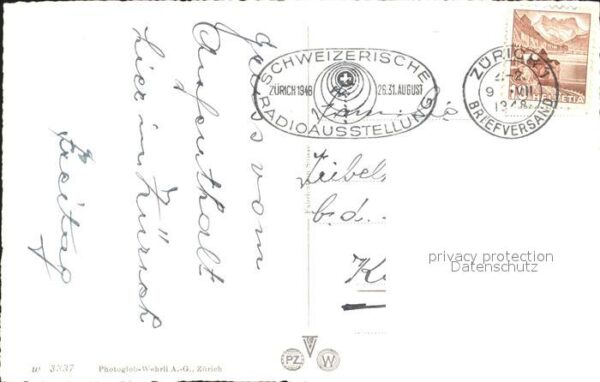 SCHWEIZERISCHE
ZÜRICH 1948 26.-31. AUGUST
RADIOAUSSTELLUNG
ZÜRICH 1
9. VIII
1948
BRIEFVERSAND
HELVETIA
Gruss vom
Aufenthalt
hier in Zürich
Freitag
b. d.
privacy protection
Datenschutz
W 3337 Photoglob-Wehrli A.-G., Zürich
PZ W